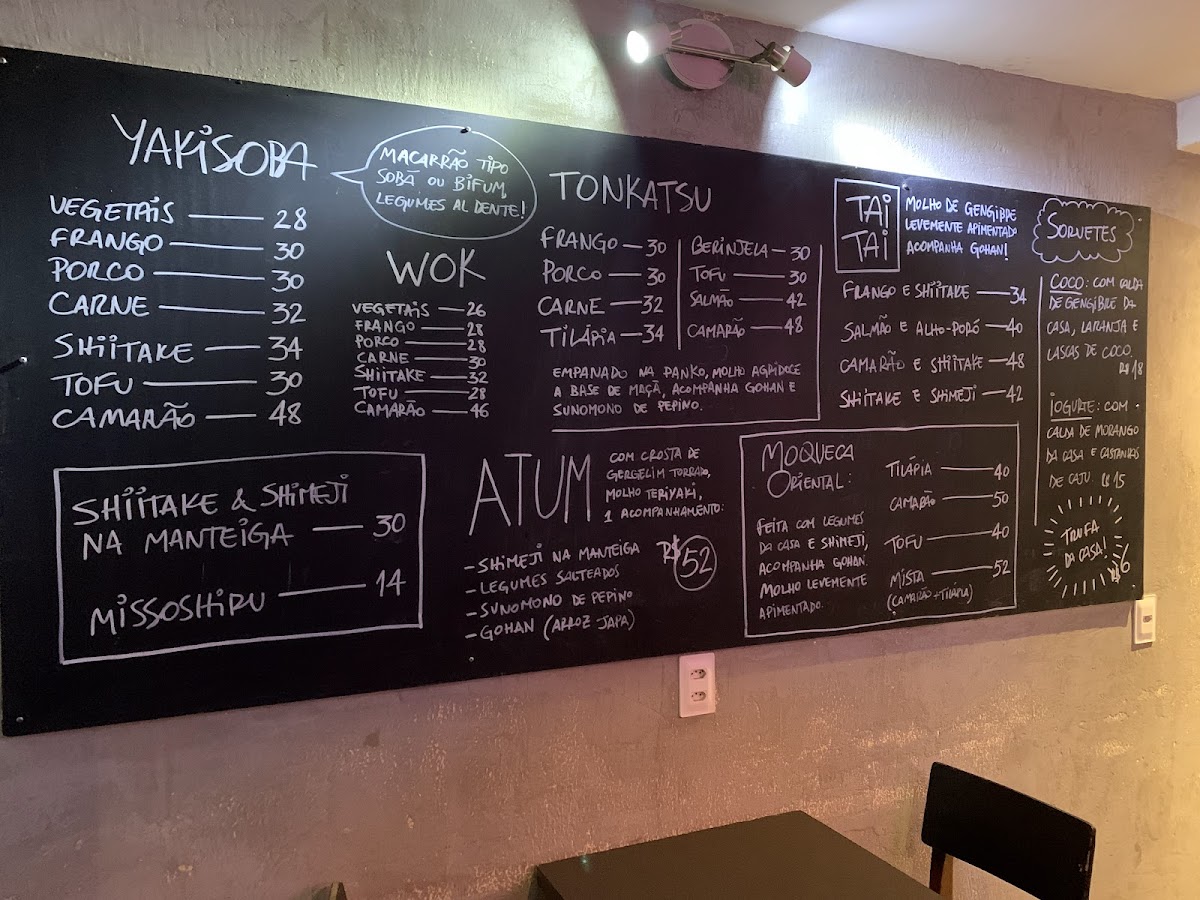 YAKISOBA
MACARRÃO TIPO
SOBÁ OU BIFUM,
LEGUMES AL DENTE!
VEGETAIS — 28
FRANGO — 30
PORCO — 30
CARNE — 32
SHIITAKE — 34
TOFU — 30
CAMARÃO — 48
WOK
VEGETAIS — 26
FRANGO — 28
PORCO — 28
CARNE — 30
SHIITAKE — 32
TOFU — 28
CAMARÃO — 46
SHIITAKE & SHIMEJI
NA MANTEIGA — 30
MISSOSHIRU — 14
TONKATSU
FRANGO — 30
PORCO — 30
CARNE — 32
TILÁPIA — 34
BERINJELA — 30
TOFU — 30
SALMÃO — 42
CAMARÃO — 48
EMPANADO NA PANKO, MOLHO AGRIDOCE
A BASE DE MAÇÃ, ACOMPANHA GOHAN E
SUNOMONO DE PEPINO.
ATUM
COM CROSTA DE
GERGELIM TORRADO,
MOLHO TERIYAKI,
1 ACOMPANHAMENTO:
- SHIMEJI NA MANTEIGA
- LEGUMES SALTEADOS
- SUNOMONO DE PEPINO
- GOHAN (ARROZ JAPA)
R$ 52
TAI
TAI
MOLHO DE GENGIBRE
LEVEMENTE APIMENTADO
ACOMPANHA GOHAN!
FRANGO E SHIITAKE — 34
SALMÃO E ALHO-PORÓ — 40
CAMARÃO E SHIITAKE — 48
SHIITAKE E SHIMEJI — 42
MOQUECA
ORIENTAL:
FEITA COM LEGUMES
DA CASA E SHIMEJI,
ACOMPANHA GOHAN.
MOLHO LEVEMENTE
APIMENTADO.
TILÁPIA — 40
CAMARÃO — 50
TOFU — 40
MISTA — 52
(CAMARÃO + TILÁPIA)
SORVETES
COCO: COM CALDA
DE GENGIBRE DA
CASA, LARANJA E
LASCAS DE COCO.
R$ 18
IOGURTE: COM
CALDA DE MORANGO
DA CASA E CASTANHAS
DE CAJU R$ 15
TRUFA
DA CASA!
R$ 6